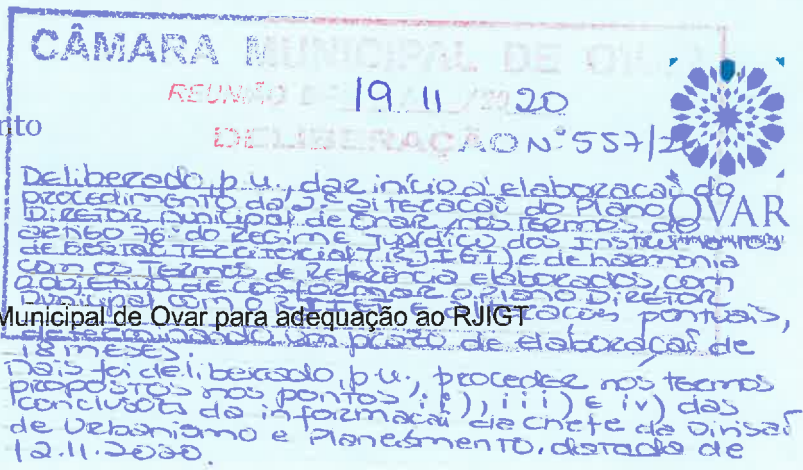 CÂMARA MUNICIPAL DE
REUNIÃO 19 11 /2020
nto
DELIBERAÇÃO Nº 557/2
Deliberado, p.u., dar início à elaboração do
procedimento da 2ª alteração do Plano
Diretor Municipal de Ovar, nos termos do
OVAR
artigo 76º do Regime Jurídico dos Instrumentos
de Gestão Territorial (RJIGT) e de harmonia
com os Termos de Referência elaborados, com
o objetivo de conformar o Plano Diretor
Municipal com o RJIGT e alterações pontuais,
Municipal de Ovar para adequação ao RJIGT
determinando um prazo de elaboração de
18 meses.
Mais foi deliberado, p.u., proceder nos termos
propostos nos pontos ii), iii) e iv) das
conclusões da informação da Chefe da Divisão
de Urbanismo e Planeamento, datada de
12.11.2020.